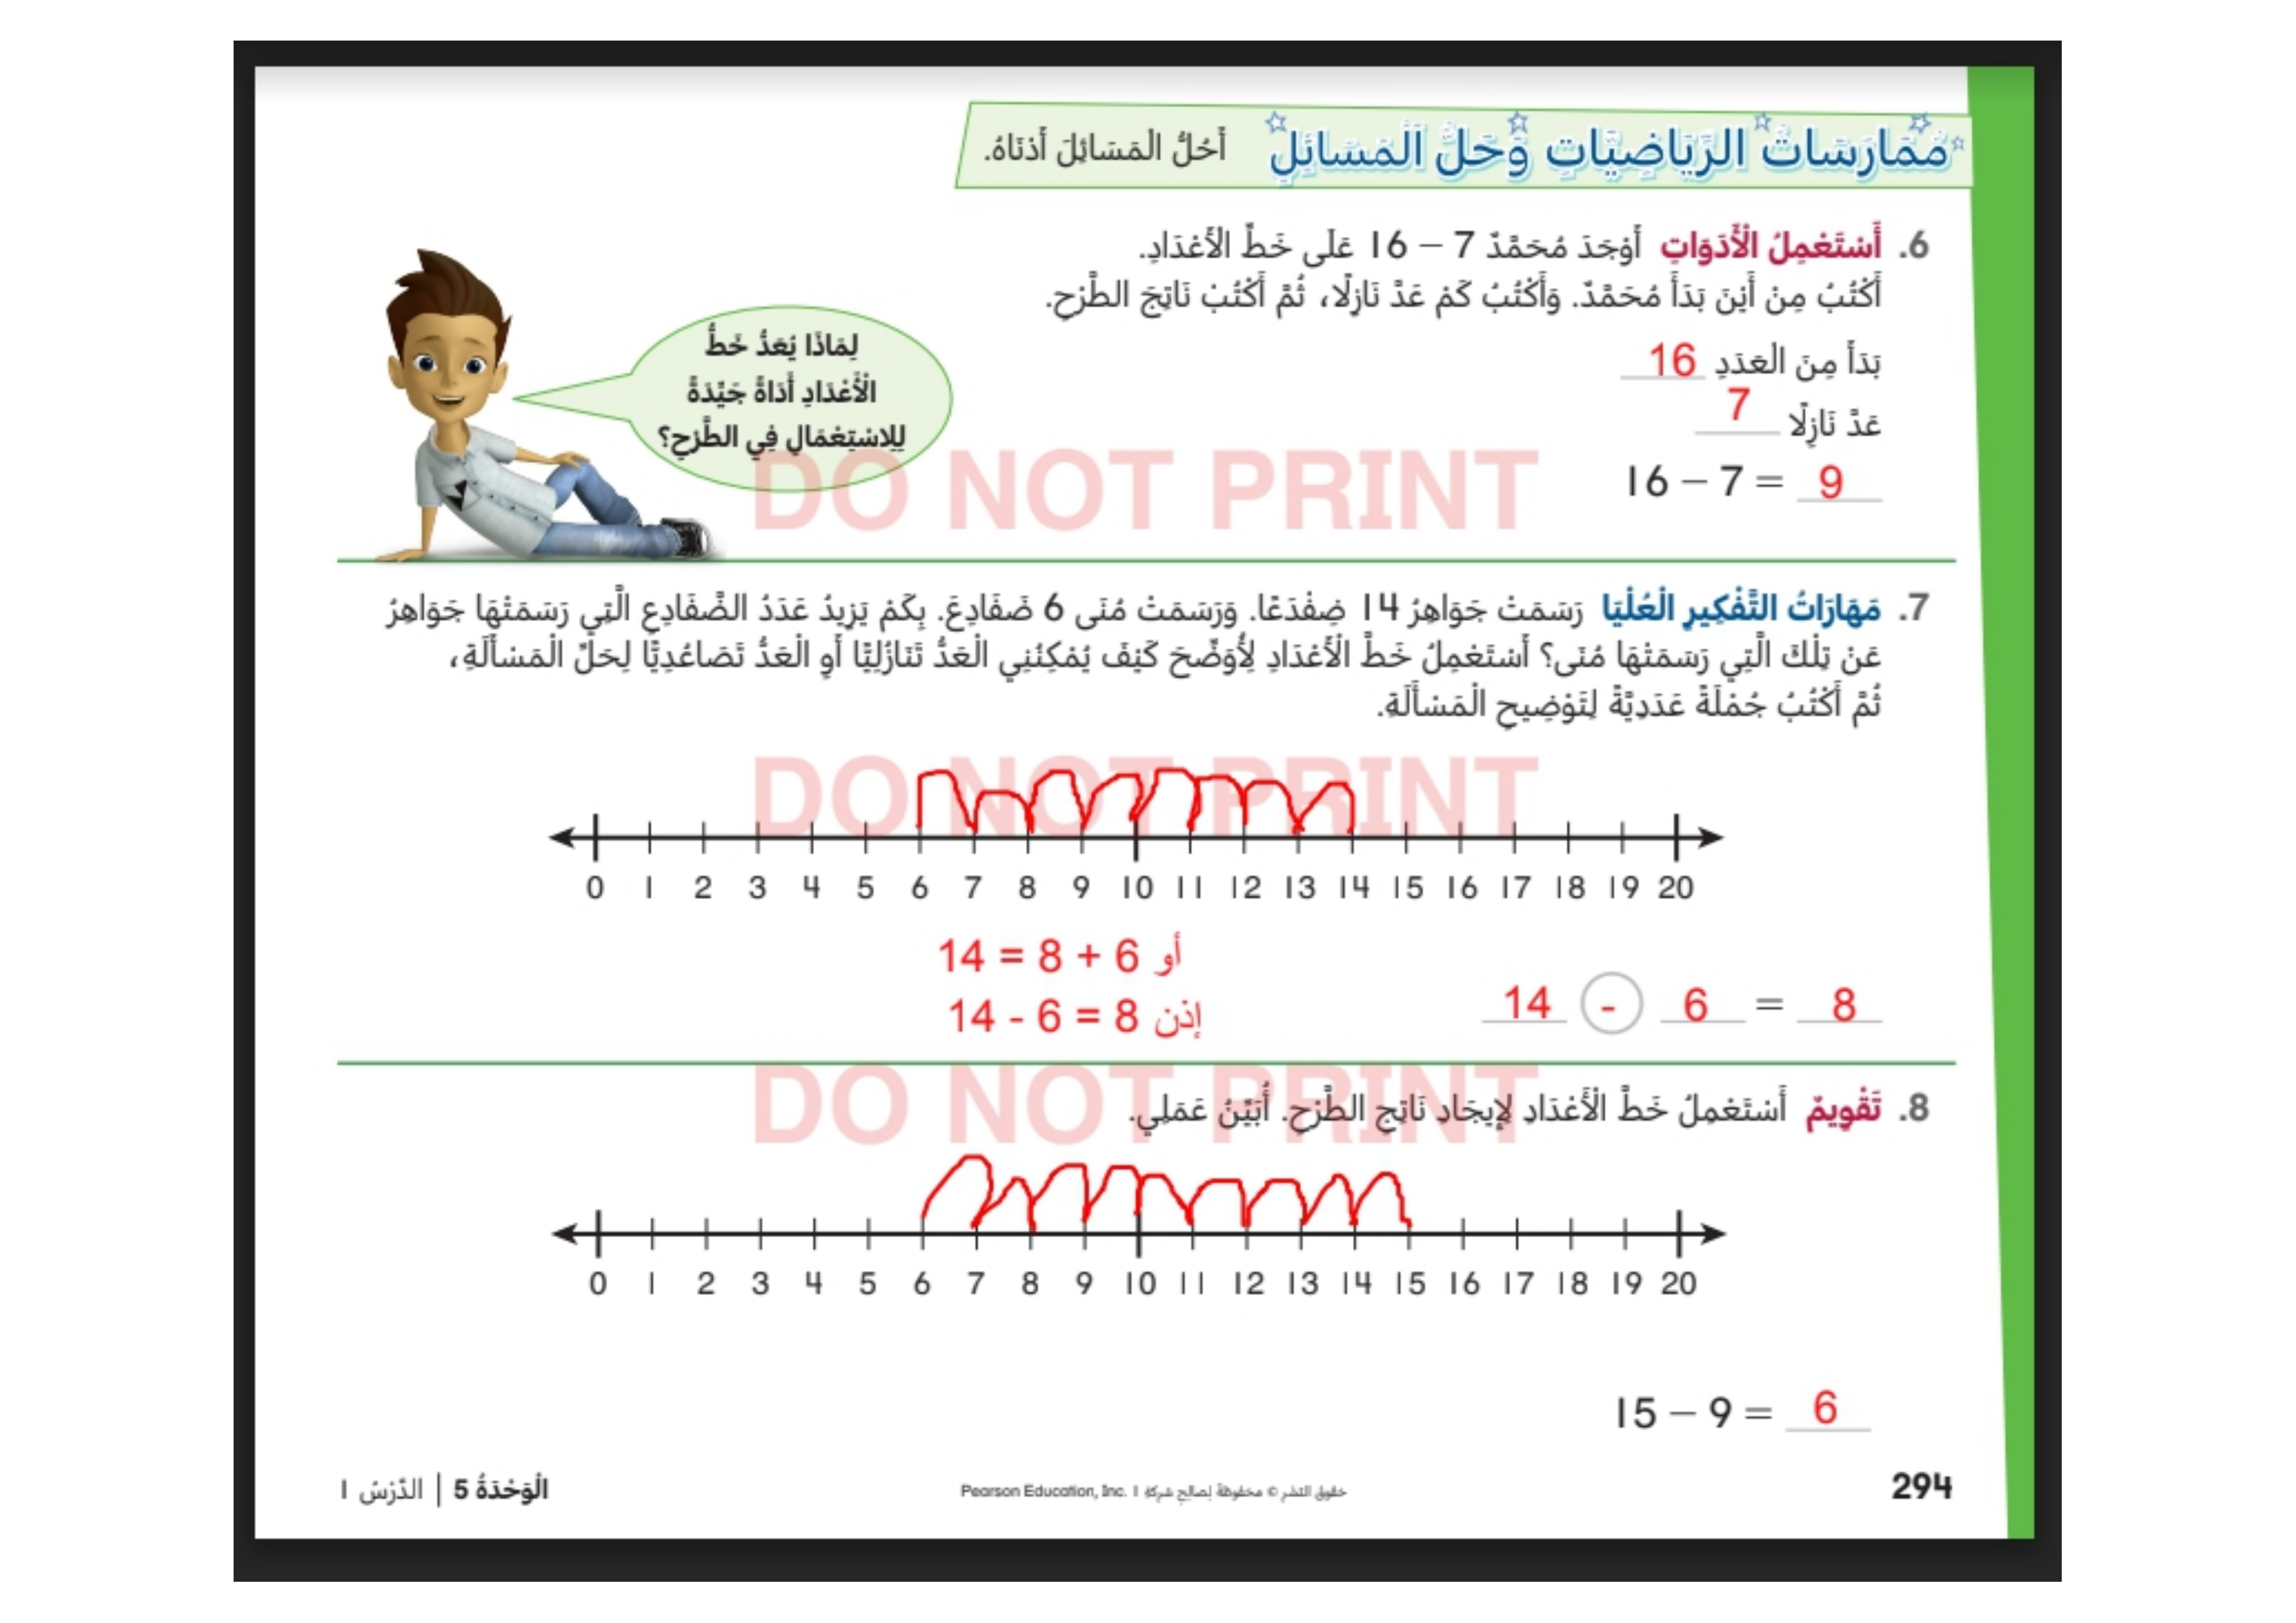 مُمَارَسَاتُ الرِّيَاضِيَّاتِ وَحَلُّ الْمَسَائِلِ أَحُلُّ الْمَسَائِلَ أَدْنَاهُ.
6. أَسْتَعْمِلُ الْأَدَوَاتِ أَوْجَدَ مُحَمَّدٌ 7 – 16 عَلَى خَطِّ الْأَعْدَادِ.
أَكْتُبُ مِنْ أَيْنَ بَدَأَ مُحَمَّدٌ. وَأَكْتُبُ كَمْ عَدَّ نَازِلًا، ثُمَّ أَكْتُبُ نَاتِجَ الطَّرْحِ.
بَدَأَ مِنَ الْعَدَدِ 16
عَدَّ نَازِلًا 7
16 – 7 = 9
لِمَاذَا يُعَدُّ خَطُّ
الْأَعْدَادِ أَدَاةً جَيِّدَةً
لِلِاسْتِعْمَالِ فِي الطَّرْحِ؟
DO NOT PRINT
7. مَهَارَاتُ التَّفْكِيرِ الْعُلْيَا رَسَمَتْ جَوَاهِرُ 14 ضِفْدَعًا. وَرَسَمَتْ مُنَى 6 ضَفَادِعَ. بِكَمْ يَزِيدُ عَدَدُ الضَّفَادِعِ الَّتِي رَسَمَتْهَا جَوَاهِرُ
عَنْ تِلْكَ الَّتِي رَسَمَتْهَا مُنَى؟ أَسْتَعْمِلُ خَطَّ الْأَعْدَادِ لِأُوَضِّحَ كَيْفَ يُمْكِنُنِي الْعَدُّ تَنَازُلِيًّا أَوِ الْعَدُّ تَصَاعُدِيًّا لِحَلِّ الْمَسْأَلَةِ،
ثُمَّ أَكْتُبُ جُمْلَةً عَدَدِيَّةً لِتَوْضِيحِ الْمَسْأَلَةِ.
DO NOT PRINT
0 1 2 3 4 5 6 7 8 9 10 11 12 13 14 15 16 17 18 19 20
أو 14 = 8 + 6
إذن 14 - 6 = 8
14 - 6 = 8
DO NOT PRINT
8. تَقْوِيمٌ أَسْتَعْمِلُ خَطَّ الْأَعْدَادِ لِإِيجَادِ نَاتِجِ الطَّرْحِ. أُبَيِّنُ عَمَلِي.
0 1 2 3 4 5 6 7 8 9 10 11 12 13 14 15 16 17 18 19 20
15 – 9 = 6
294
حقوق النشر © محفوظة لصالح شركة Pearson Education, Inc. 1
الْوَحْدَةُ 5 | الدَّرْسُ 1